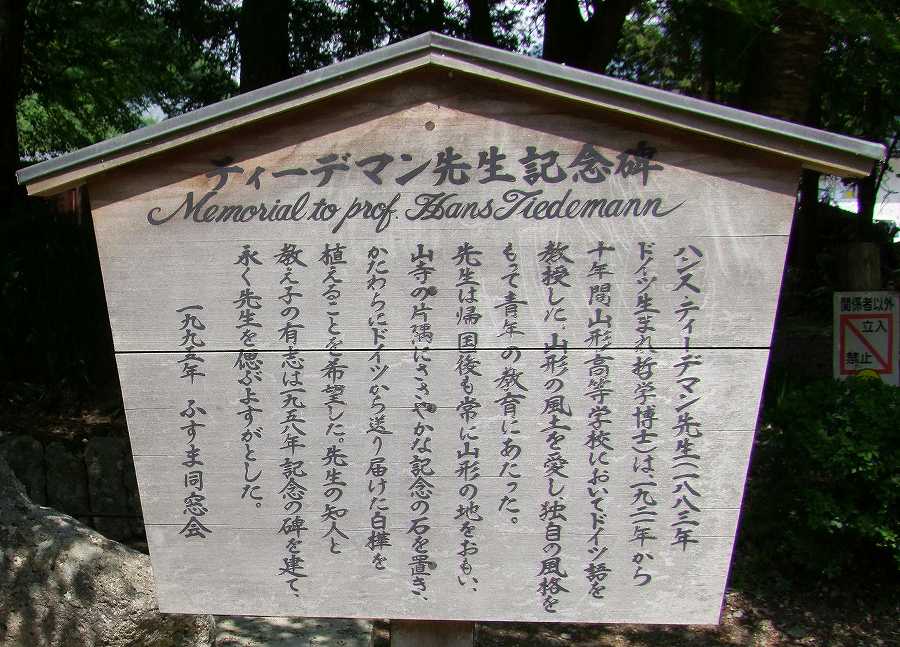 ティーデマン先生記念碑
Memorial to prof. Hans Tiedemann
ハンス・ティーデマン先生(一八八三年
ドイツ生まれ哲学博士)は一九二一年から
十年間山形高等学校においてドイツ語を
教授した。山形の風土を愛し、独自の風格を
もって青年の教育にあたった。
先生は帰国後も常に山形の地をおもい、
山寺の片隅にささやかな記念の石を置き、
かたわらにドイツから送り届けた白樺を
植えることを希望した。先生の知人と
教え子の有志は一九五八年記念の碑を建て、
永く先生を偲ぶよすがとした。
一九九五年 ふすま同窓会
関係者以外
立入
禁止